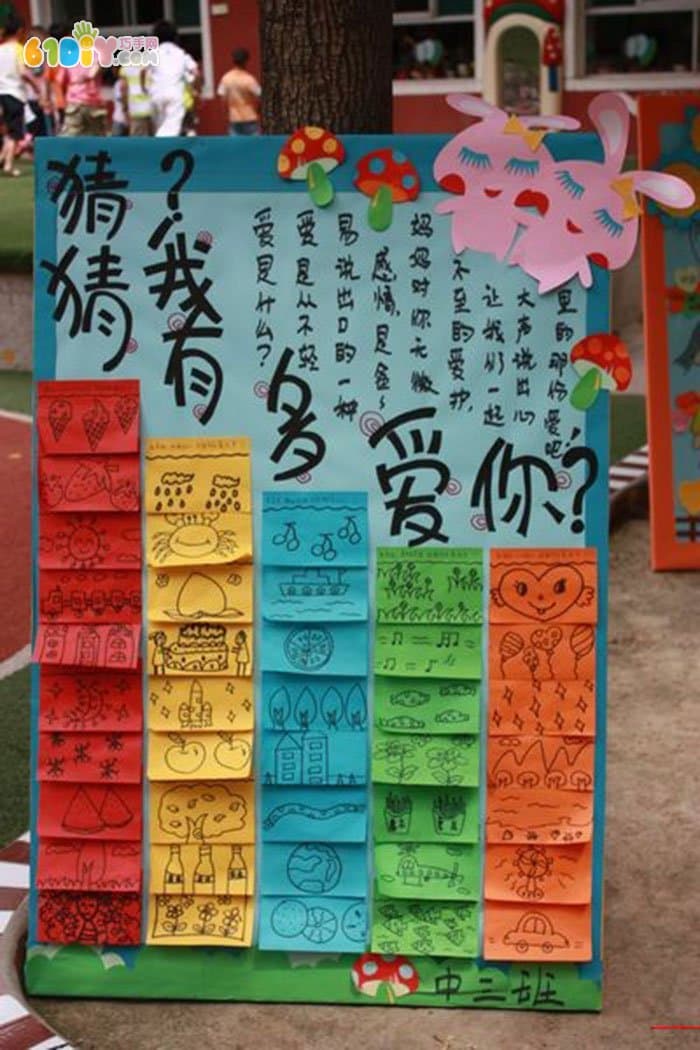 610DIY巧手网
.com
猜猜
?我有
多
爱
你?
爱是什么?
爱是从不轻
易说出口的一种
感情,是
妈妈对你无微
不至的爱护,
让我们一起
大声说出心
里的那份爱吧!
中三班